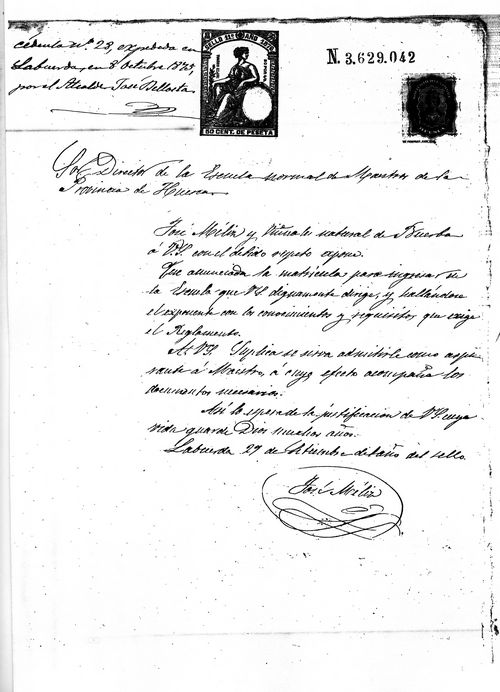 cédula Nº. 23, expedida en
Labuerda, en 8 Octubre 1875,
por el Alcalde José Bellosta
SELLO 11º AÑO 1876
50 CENT. DE PESETA
N. 3.629.042
Sor. Director de la Escuela normal de Maestros de la
Provincia de Huesca
José Milin y Viñuales natural de Buerba
á V.S. con el debido respeto expone.
Que anunciada la matrícula para ingresar en
la Escuela que V.S. dignamente dirige, y hallándose
el exponente con los conocimientos y requisitos que exige
el Reglamento.
A V.S. Suplica se sirva admitirle como aspi-
rante á Maestro, á cuyo efecto acompaña los
documentos necesarios.
Así lo espera de la justificacion de V.S. cuya
vida guarde Dios muchos años.
Labuerda 29 de Setiembre del año del sello.
José Milin